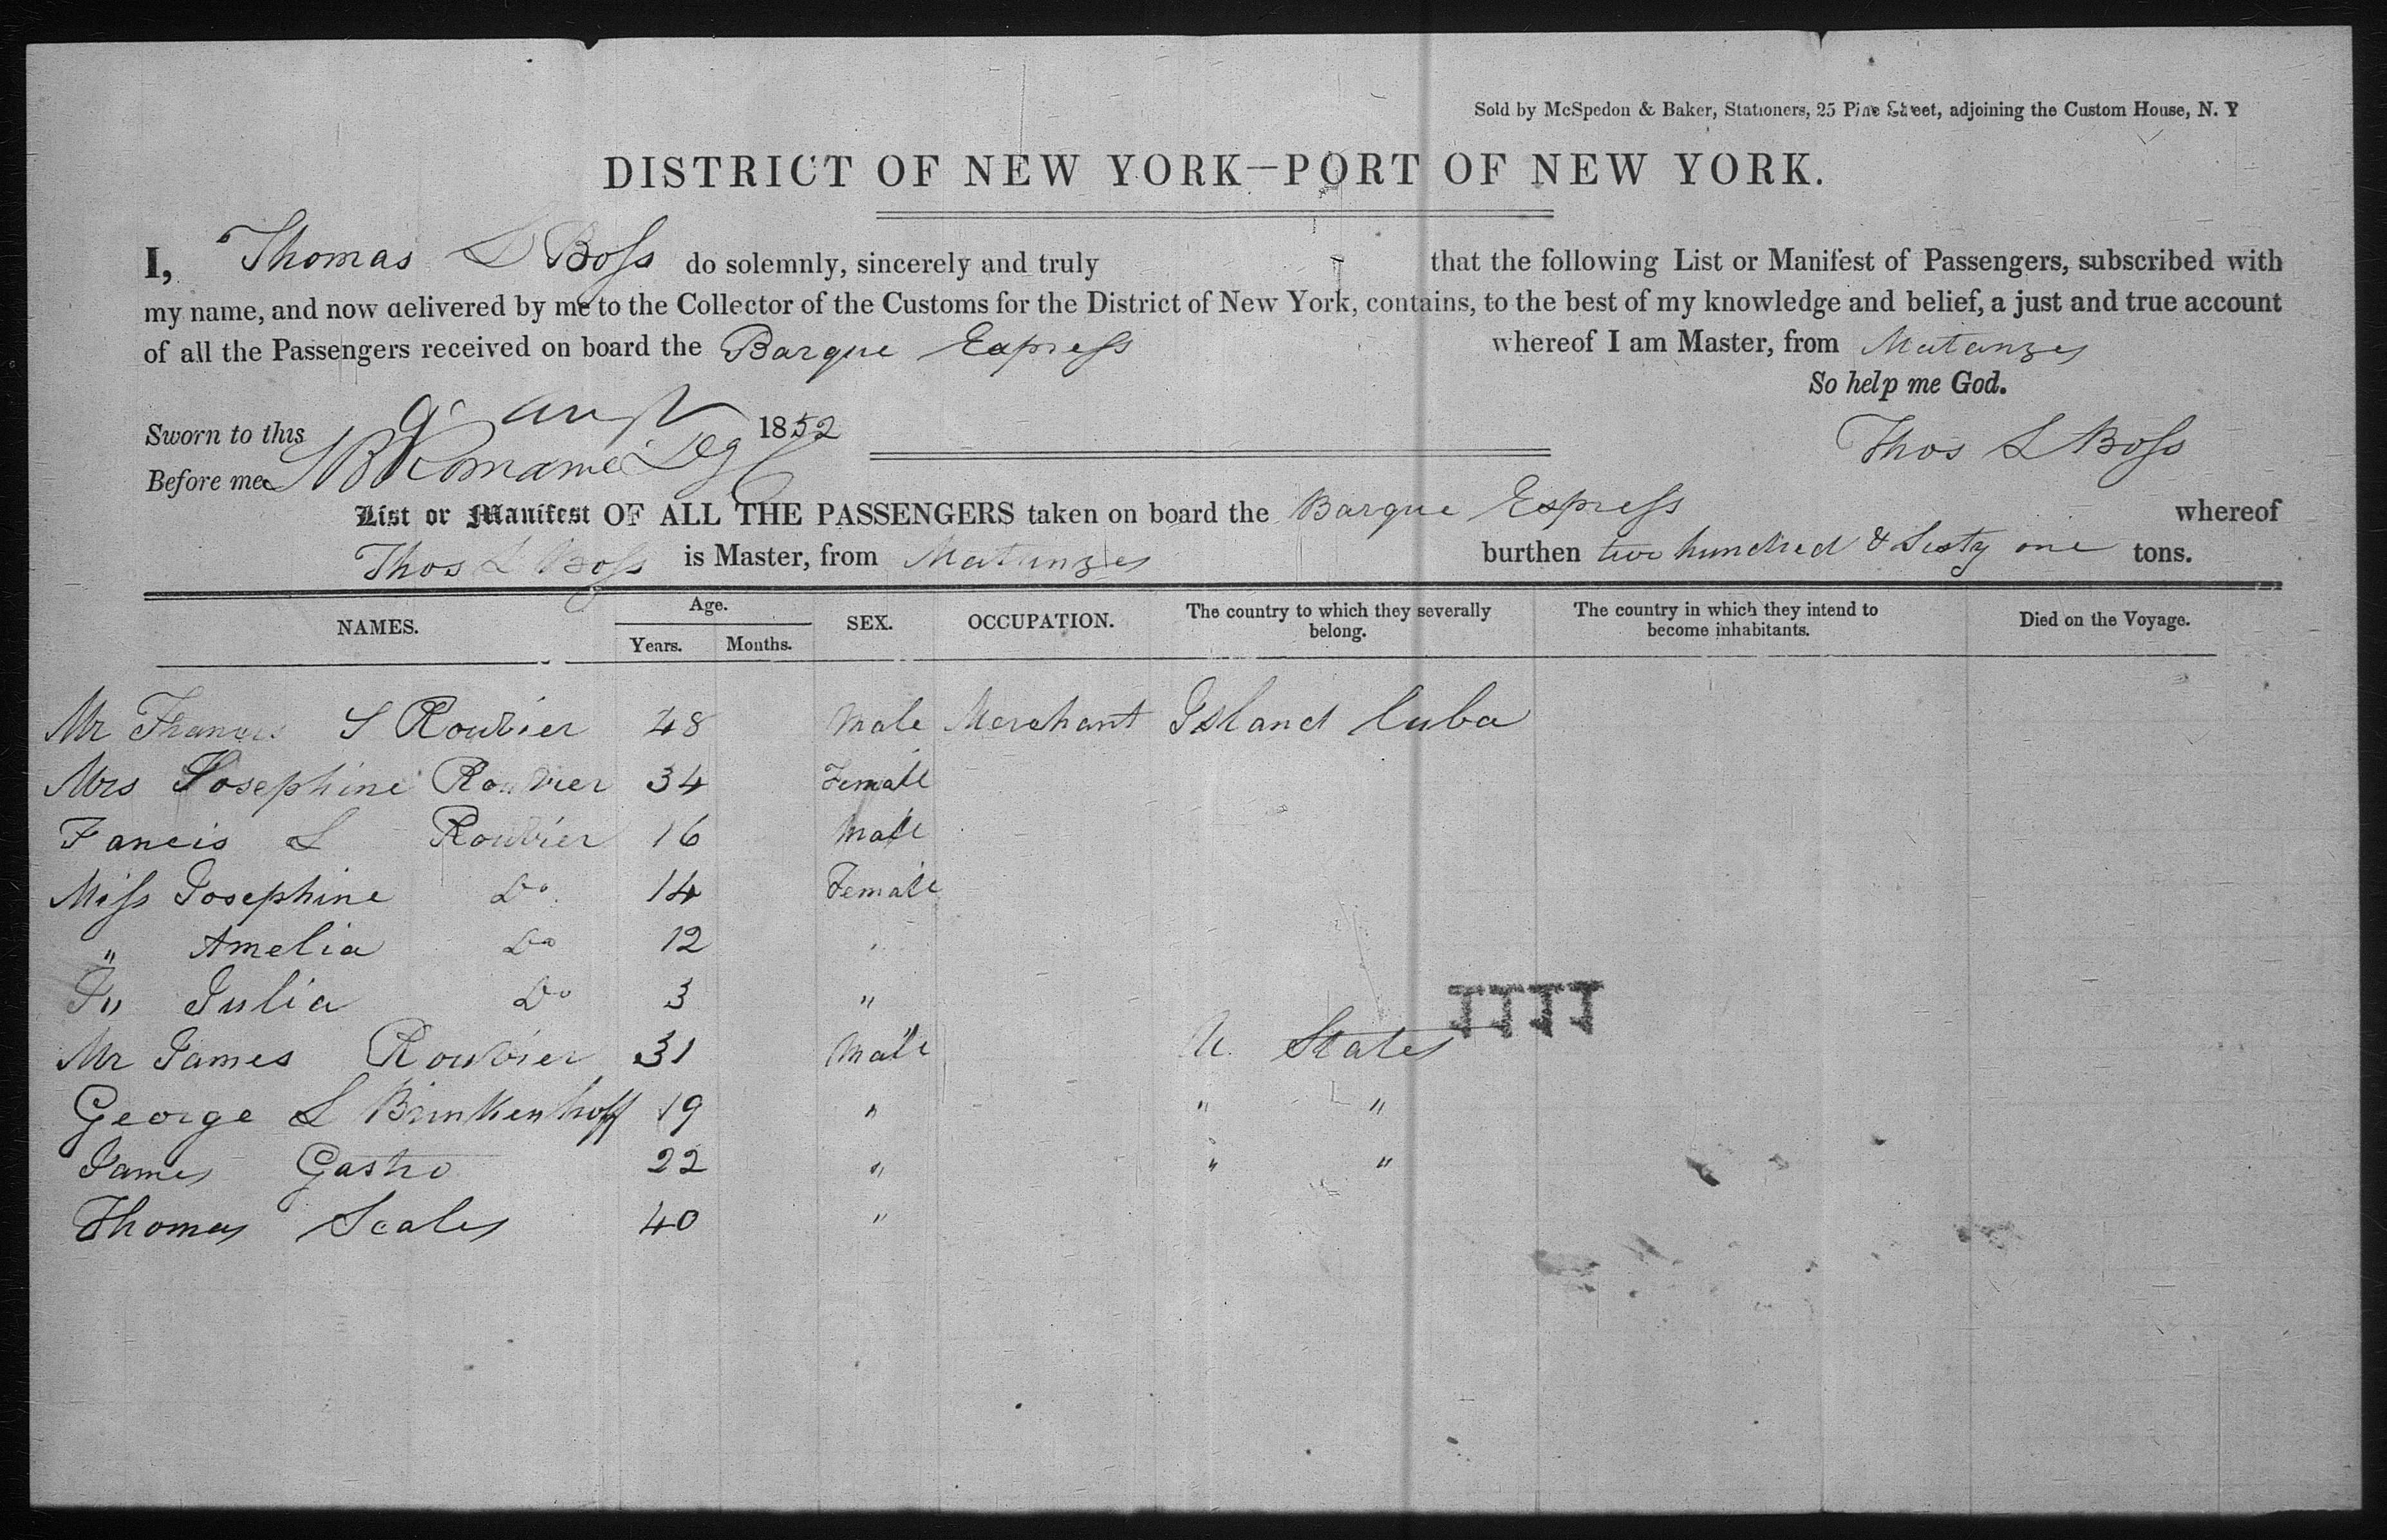 Sold by McSpedon & Baker, Stationers, 25 Pine Street, adjoining the Custom House, N. Y
DISTRICT OF NEW YORK—PORT OF NEW YORK.
I, Thomas L Boss do solemnly, sincerely and truly that the following List or Manifest of Passengers, subscribed with
my name, and now delivered by me to the Collector of the Customs for the District of New York, contains, to the best of my knowledge and belief, a just and true account
of all the Passengers received on board the Barque Express whereof I am Master, from Matanzes
So help me God.
Sworn to this 9 1852
Thos L Boss
Before me
List or Manifest OF ALL THE PASSENGERS taken on board the Barque Express whereof
Thos L Boss is Master, from Matanzes burthen two hundred & Sixty one tons.
NAMES. Age. Years. Months. SEX. OCCUPATION. The country to which they severally belong. The country in which they intend to become inhabitants. Died on the Voyage.
Mr Francis S Rouvier 48 Male Merchant Island Cuba
Mrs Josephine Rouvier 34 Female
Fancis L Rouvier 16 Male
Miss Josephine Do 14 Female
" Amelia Do 12
Julia Do 3 "
Mr James Rouvier 31 Male U. States
George L Brinkenhoff 19 " " "
James Gastro 22 " " "
Thomas Scales 40 "